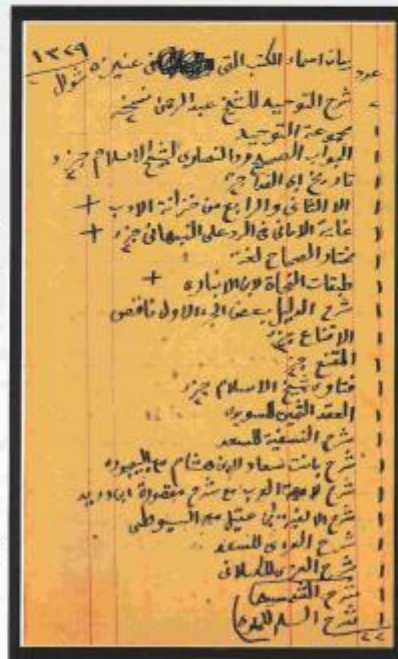 ١٣٢٩
عدد بيان اسماء الكتب التي في عنيزه شوال
٢ شرح التوحيد للشيخ عبد الرحمن
١ مجموعة التوحيد
١ الجواب الصحيح ردا لنصارى لشيخ الاسلام جزء
١ تاريخ ابي الفدا جزء
١ الثاني والرابع من خزانة الادب +
١ غاية الاماني في الرد على النبهاني جزء +
١ مختار الصحاح لغة
١ طبقات النحاة لابن الانباري +
١ شرح الدليل بعض الجزء الاول ناقص
١ الاقناع جزء
١ المقنع جزء
١ فتاوى شيخ الاسلام جزء
١ العقد الثمين للسويدي
١ شرح النسفية للسعد
١ شرح بانت سعاد لابن هشام مع البيجوري
١ شرح لامية العرب مع شرح مقصورة ابن دريد
١ شرح الالفية لابن عقيل مع السيوطي
١ شرح العزي للسعد
١ شرح العزي للكيلاني
١ شرح الشمسية
١ شرح السلم
٢٢